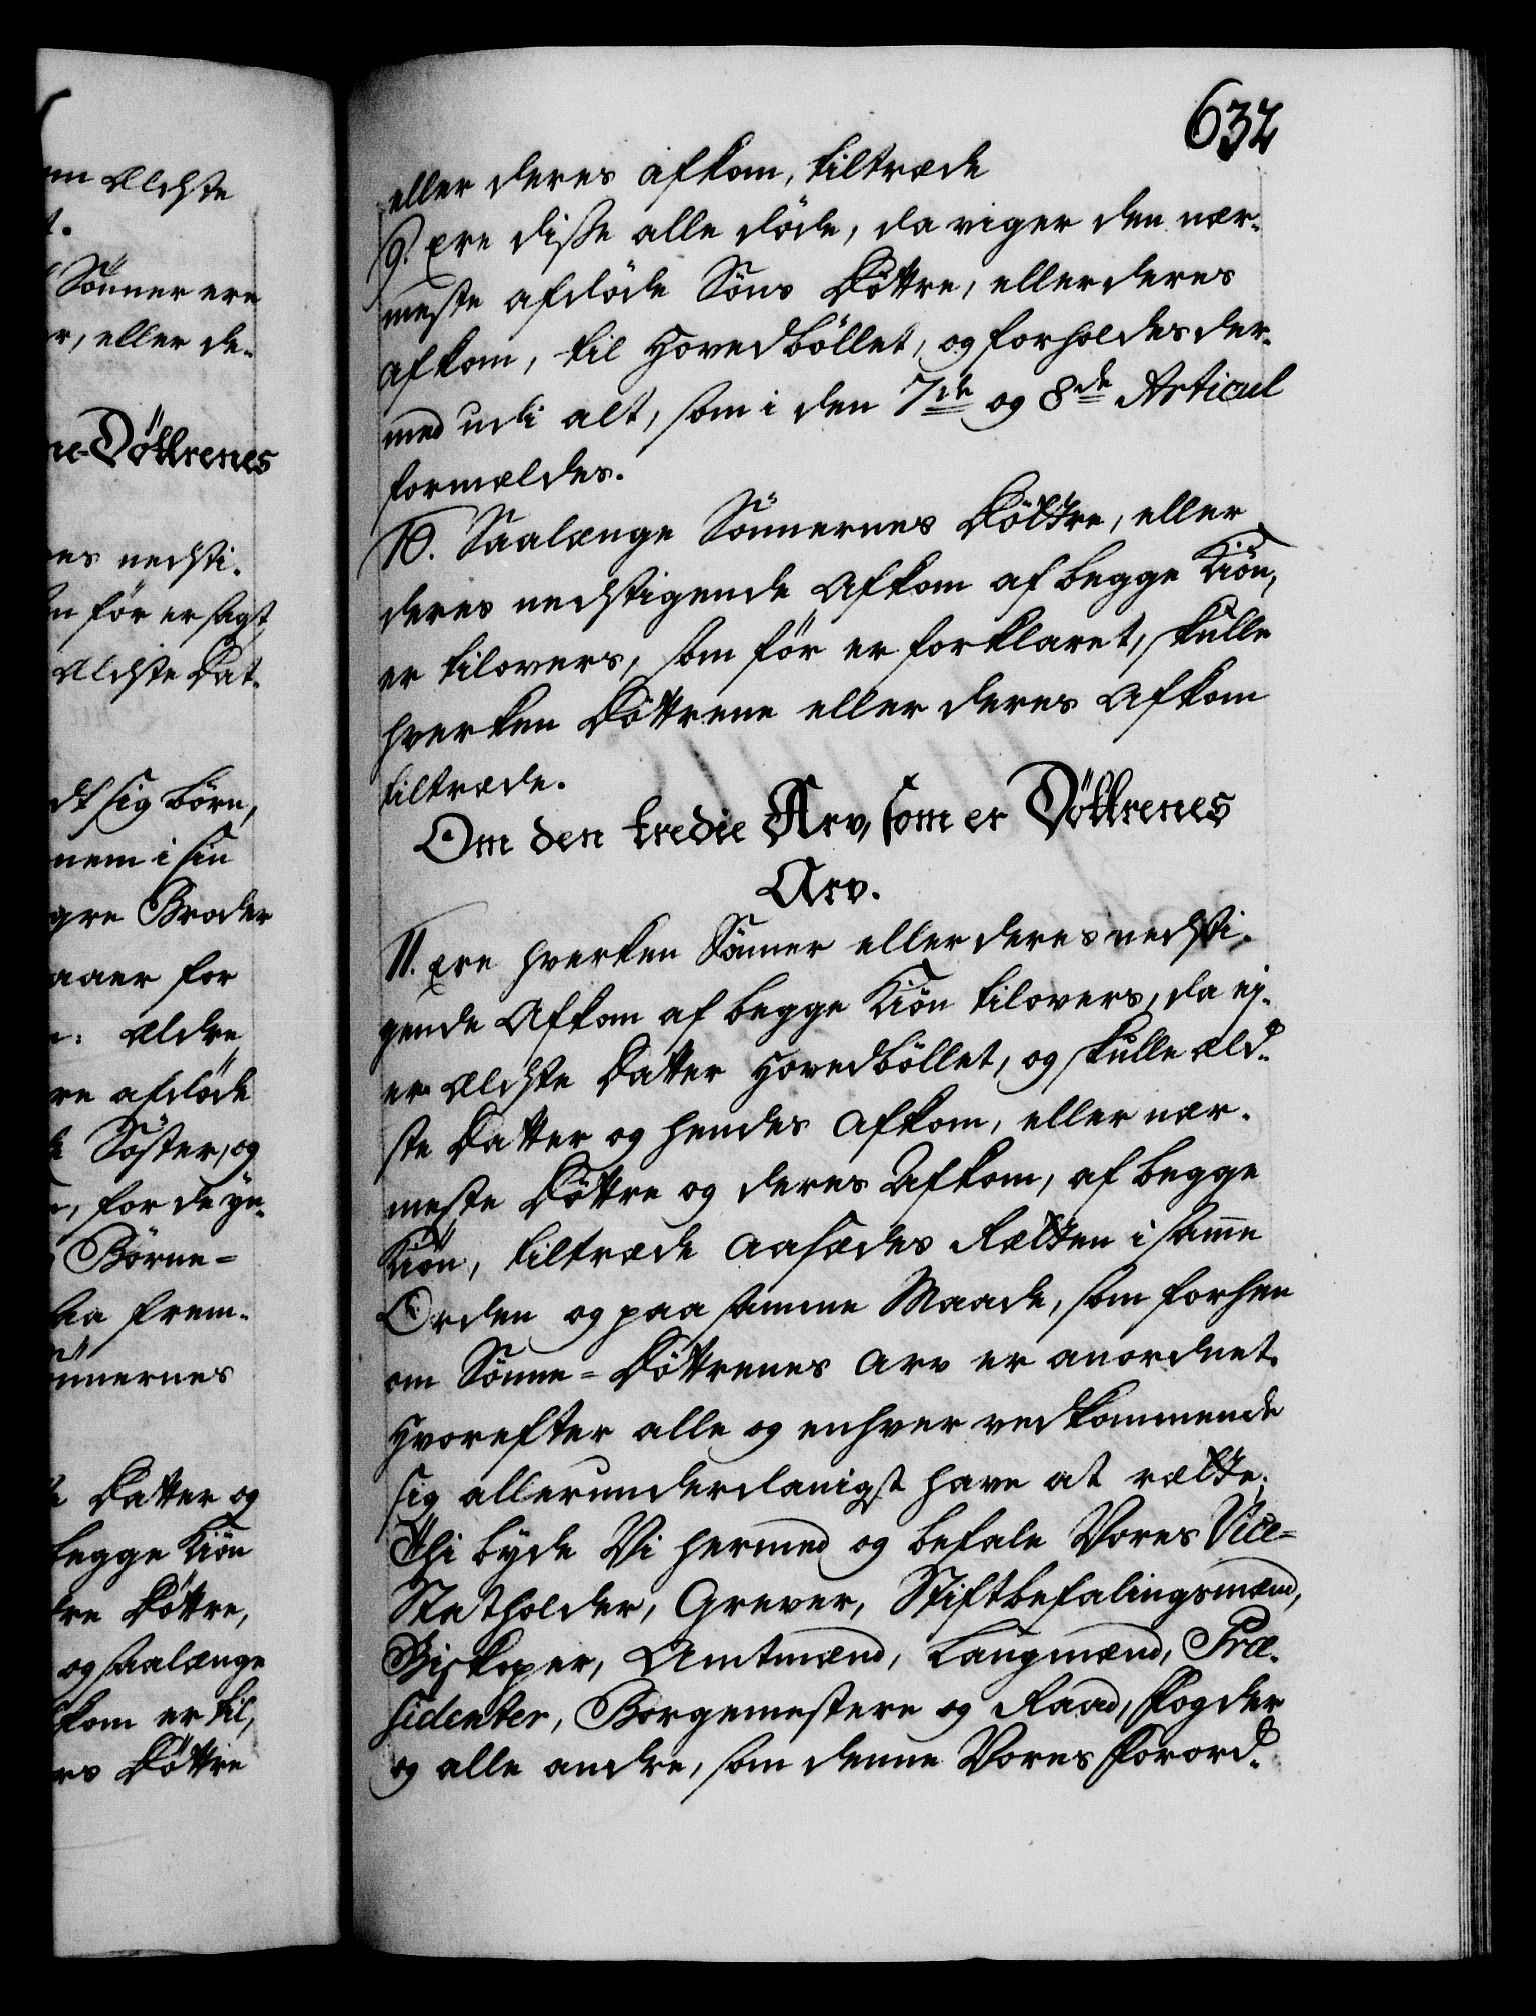 632
eller deres afkom, tiltræde
9. Ere disse alle døde, da viger den nær-
meste afdøde Søns Døttre, eller deres
afkom, til Hovedböllet, og forholdes der-
med udi alt, som i den 7de og 8de Articul
formældes.
10. Saalænge Sönnernes Döttre, eller
deres nedstigende Afkom af begge Kiön,
er tilovers, som før er forklaret, skulle
hverken Döttrene eller deres Afkom
tiltræde.
Om den tredie Arv, som er Döttrenes
Arv.
11. Ere hverken Sönner eller deres nedsti-
gende Afkom af begge Kiön tilovers, da ej-
er Ældste Datter Hovedböllet, og skulle æld-
ste Datter og hendes Afkom, eller nær-
meste Döttre og deres Afkom, af begge
Kiön, tiltræde Aasædes Rætten i samme
Orden og paa samme Maade, som forhen
om Sönne-Döttrenes Arv er anordnet.
Hvorefter alle og enhver vedkommende
sig allerunderdanigst have at rætte.
Thi byde Vi hermed og befale Vores Vice-
Statholder, Grever, Stiftbefalingsmænd,
Biskoper, Amtmænd, Laugmænd, Præ-
sidenter, Borgemestere og Raad, Fogder
og alle andre, som denne Vores Forord-
Ældste
Sönner ere
r, eller de-
ne-Döttrenes
nedsti-
før er sagt
Ældste Dat-
sig börn,
nem i sin
Broder
for
Ældre
afdöde
Söster, og
for de yn-
Börne-
frem-
Datter og
begge Kiön
Döttre,
og saalænge
kom er til,
Döttre